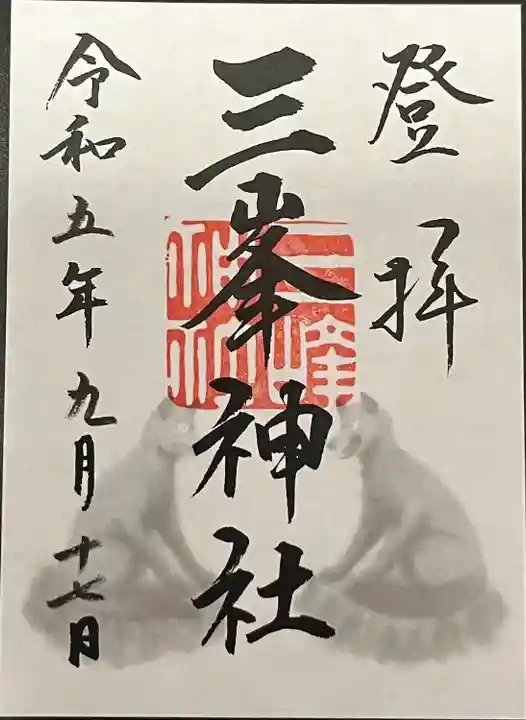 登拝
三峯神社
令和五年九月十七日